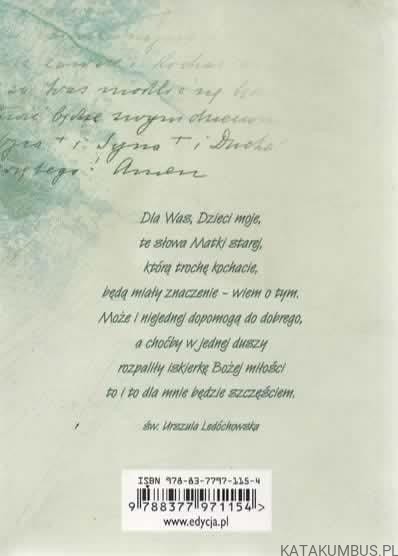 za Was modlić się będę
będzie swymi
i Syna + i Ducha
Amen
Dla Was, Dzieci moje,
te słowa Matki starej,
którą trochę kochacie,
będą miały znaczenie – wiem o tym.
Może i niejednej dopomogą do dobrego,
a choćby w jednej duszy
rozpaliły iskierkę Bożej miłości
to i to dla mnie będzie szczęściem.
św. Urszula Ledóchowska
ISBN 978-83-7797-115-4
9 788377 971154 >
www.edycja.pl
KATAKUMBUS.PL